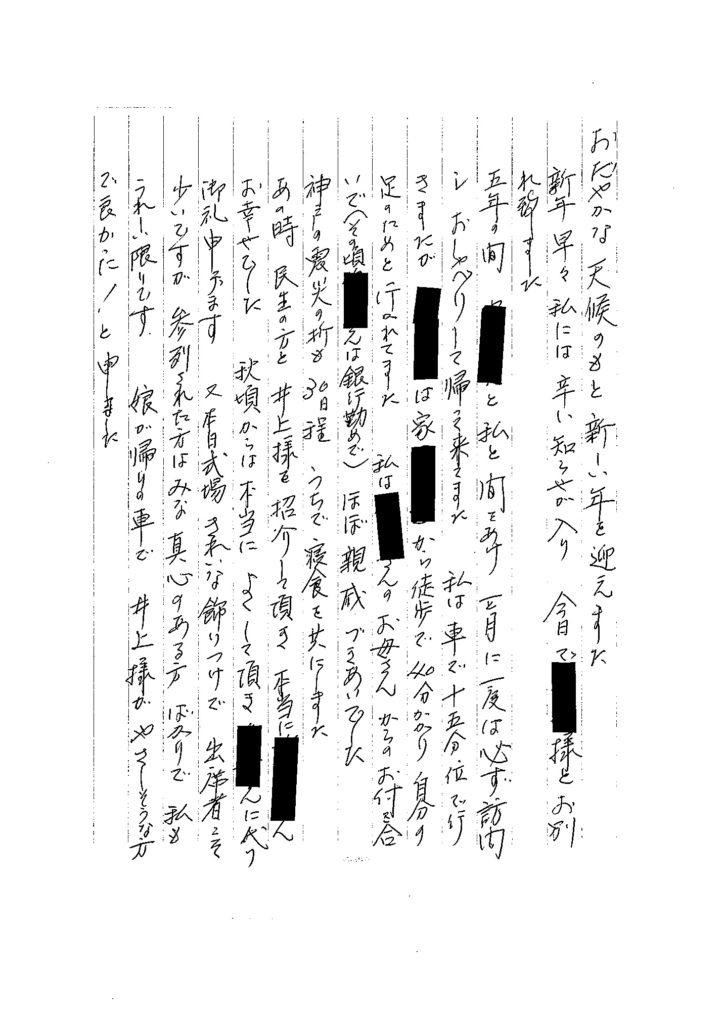 おだやかな天候のもと新しい年を迎えました
新年早々私には辛い知らせが入り 今日で 様とお別
れ致すた
五年の間 と私と間をあけ 一ヶ月に一度は必ず訪問
し おしゃべりして帰って来てました 私は車で十五分位で行
きましたが は家 から徒歩で40分かかり自分の
足のためと行かれてました 私は さんのお母さんからのお付き合
いで(その頃 えは銀行勤めで)ほぼ親戚づきあいでした
神戸の震災の折も30日程 うちで寝食を共にしました
あの時 民生の方と 井上様を紹介して頂き 本当に ん
お幸せでした 秋頃からは本当に よくして頂き んに代り
御礼申します 又本日式場 きれいな飾りつけで 出席者こそ
少いですが 参列された方はみな真心のある方ばかりで 私も
うれしい限りです 娘が帰りの車で 井上様がやさしそうな方
で良かった!と申ました